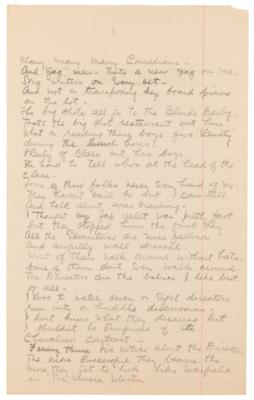 Many many many Comedians -
And Gag men - thats a new gag on me.
Song writers on every
And not a transposing key board piano
on the lot -
The big shots all go to the Blonde Derby.
Thats the big shot restaurant out here
What a reading these boys give
during the lunch hour.
Plenty of Class out here boys
Its hard to tell whos at the head of the
class -
Some of these folks never even heard of me.
They havent said so but I can tell
And talk about wise cracking.
I thought my gag was pretty fast
but they stopped me the first day
All the Executives are nice fellows
And awfully well dressed
Most of them walk around without hats.
Some of them dont even walk around.
The Directors are the babies I like best
of all -
I love to watch seven or eight directors
run into a huddle discussion.
I dont know what they discuss but
I shouldnt be surprised if its
Chevaliers Contract -
Funny thing Ive notice about the Directors
The more successful they become the
more they get to look like Warfield
in "The Music Master"